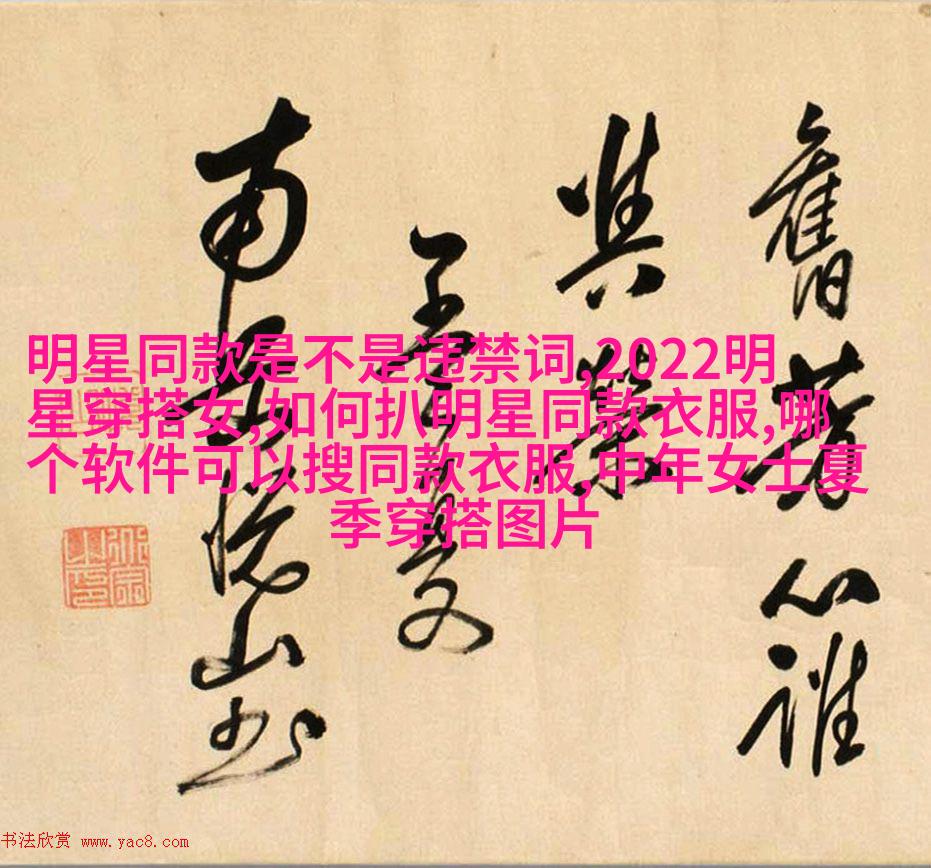 舊勞心誰
南岳悅山书
明星同款是不是违禁词,2022明
星穿搭女,如何扒明星同款衣服,哪
个软件可以搜同款衣服,中年女士夏
季穿搭图片
书法欣赏 www.yac8.com